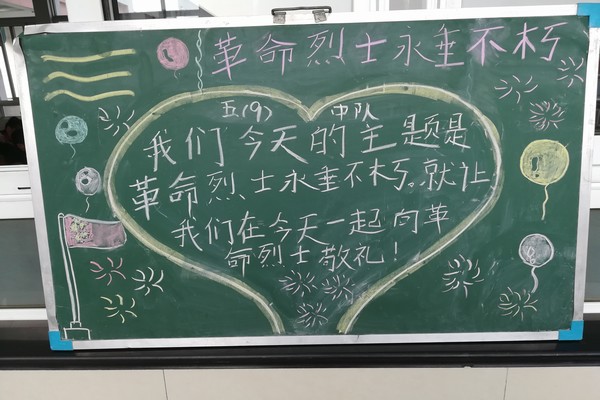 革命烈士永垂不朽
五(9) 中队
我们今天的主题是
革命烈士永垂不朽。就让
我们在今天一起向革
命烈士敬礼!